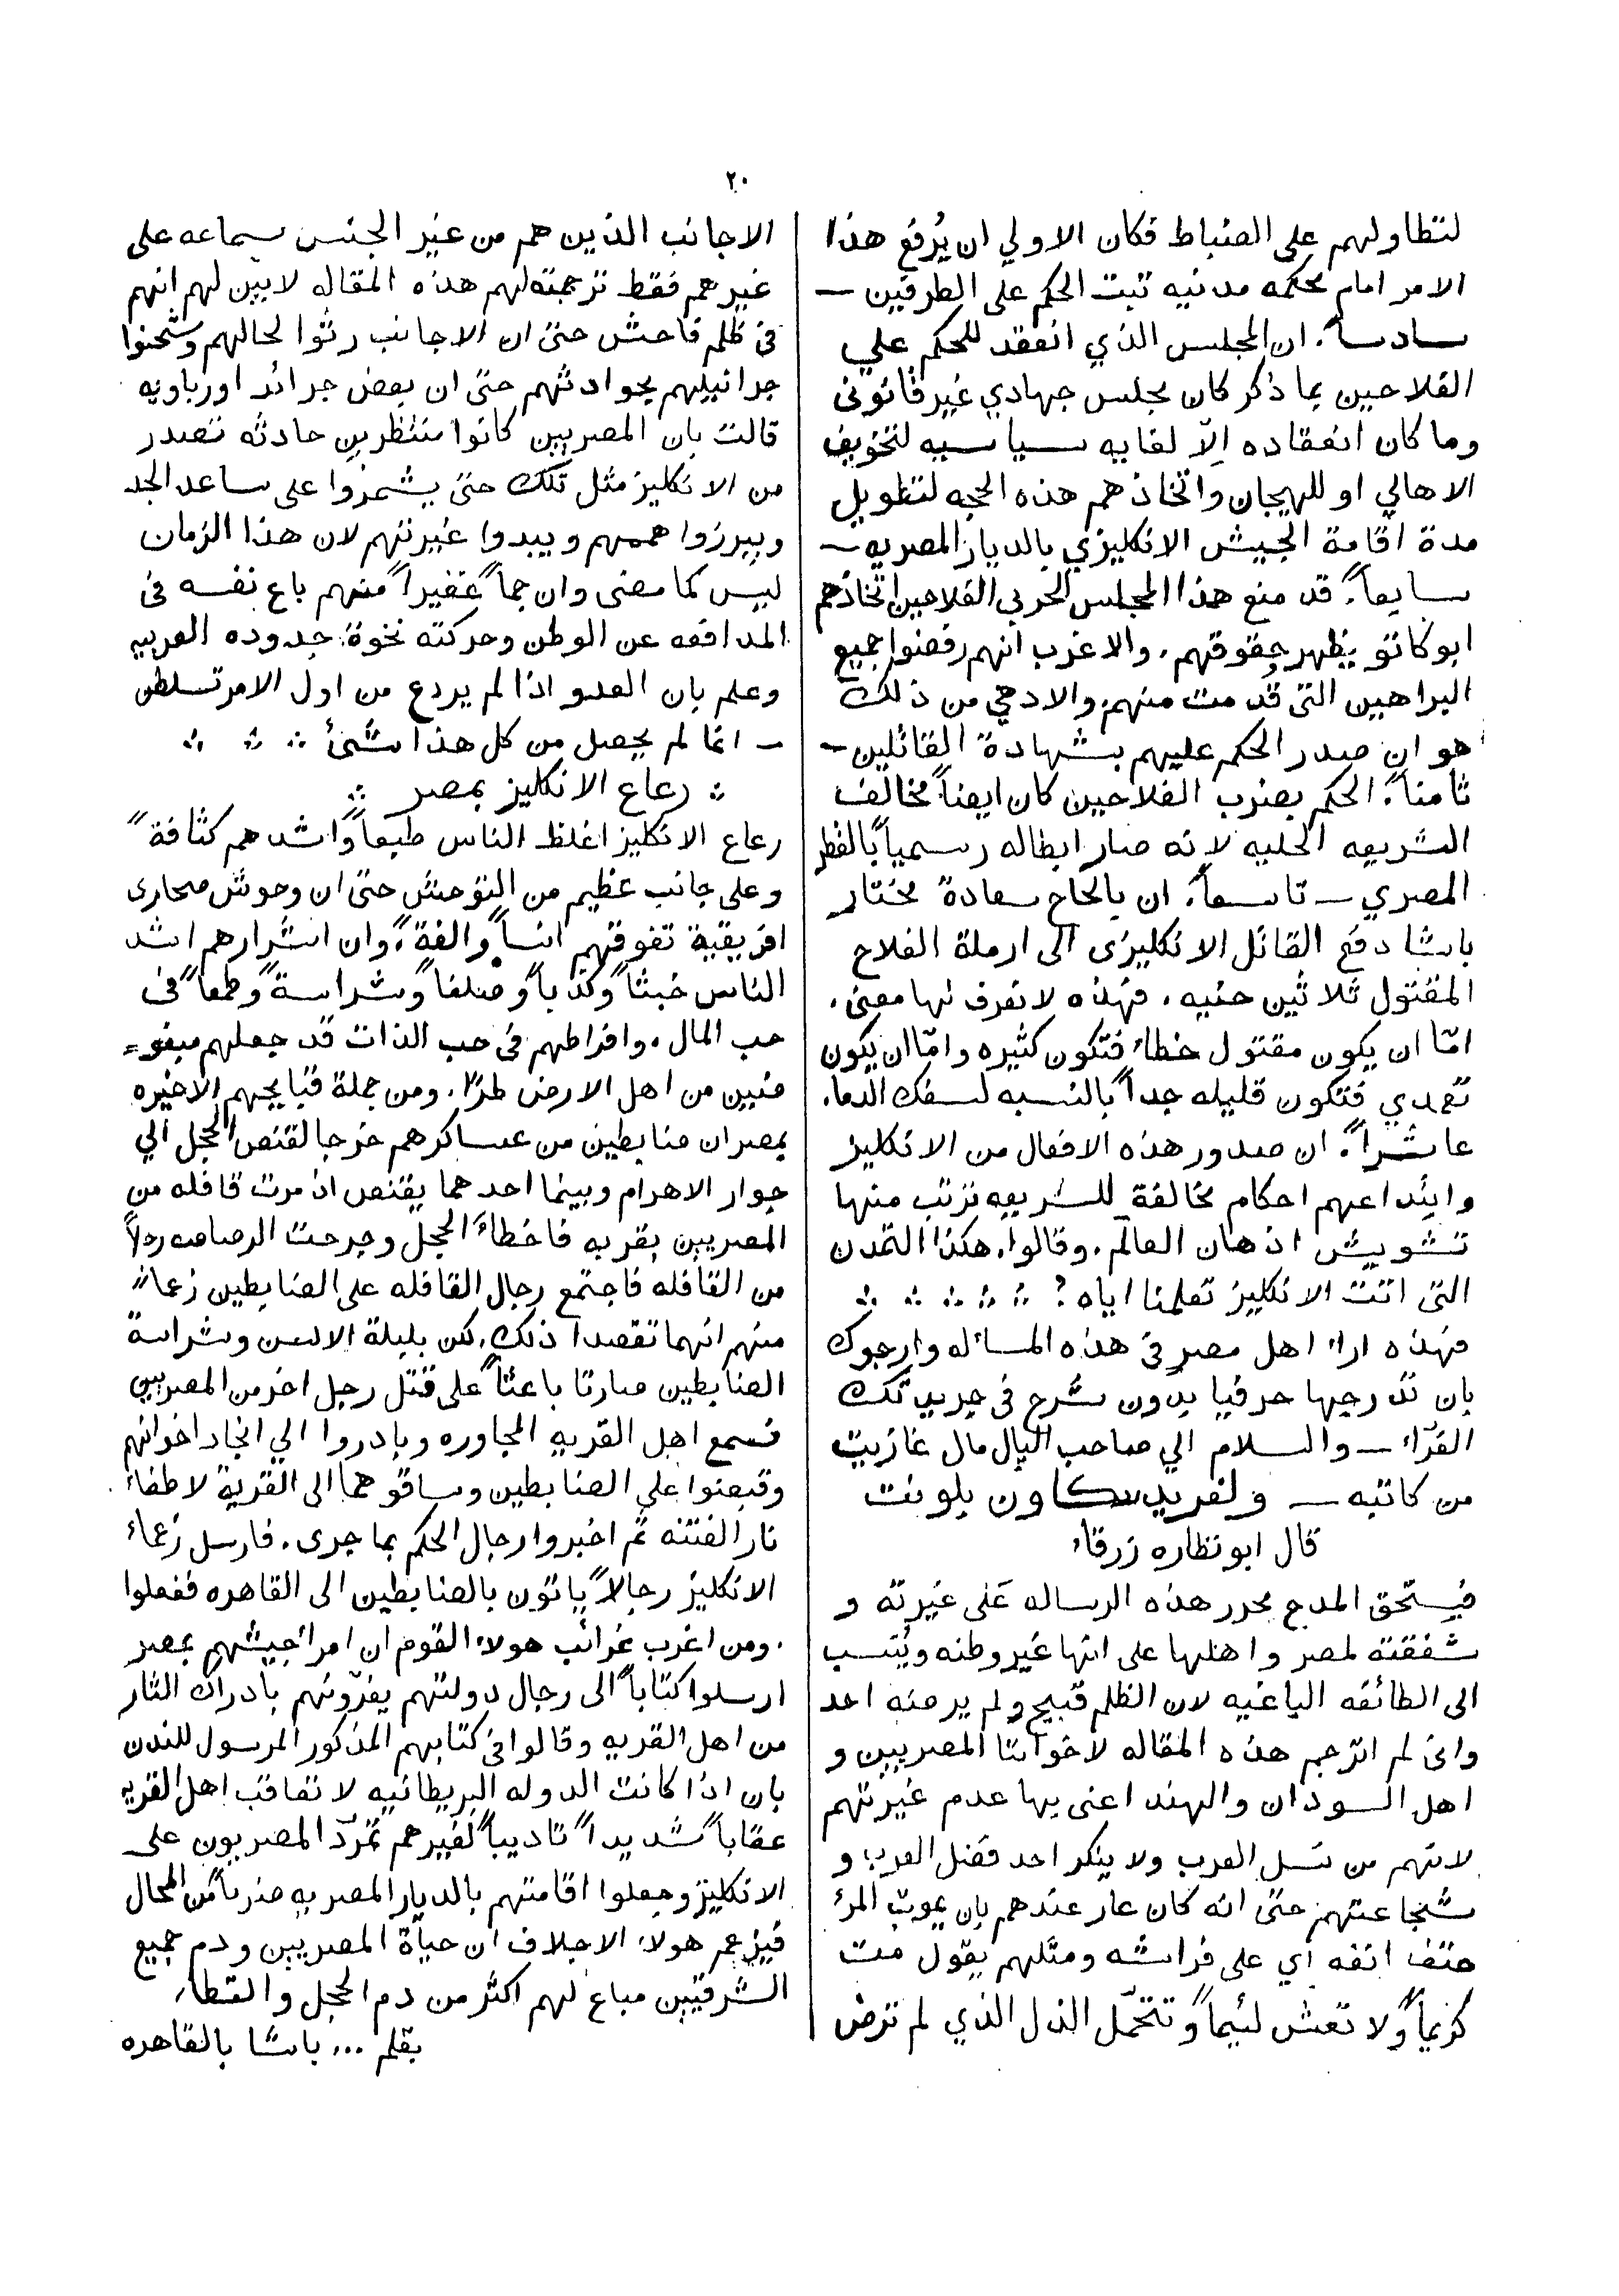 ٢٠
لتطاولهم على الضباط فكان الاولي ان يُرفع هذا
الامر امام محكمه مدنيه تبت الحكم على الطرفين —
سادساً. ان المجلس الذي انعقد للحكم علي
الفلاحين بما ذكر كان مجلس جهادي غير قانونى
وما كان انعقاده اِلّا لغايه سياسيه لتخويف
الاهالي او للهيجان واتخاذهم هذه الحجه لتطويل
مدة اقامة الجيش الانكليزي بالديار المصريه —
سابعاً. قد منع هذا المجلس الحربي الفلاحين اتخاذهم
ابوكاتو يظهر حقوقهم. والاغرب انهم رفضوا جميع
البراهين التى قُدمت منهم والادهي من ذلك
هو ان صدر الحكم عليهم بشهادة القاتلين —
ثامناً. الحكم بضرب الفلاحين كان ايضاً مخالف
الشريعه المحليه لانه صار ابطاله رسمياً بالقطر
المصري — تاسعاً. ان بالحاح سعادة مختار
باشا دفع القاتل الانكليزى الى ارملة الفلاح
المقتول ثلاثين جنيه. فهذه لا نعرف لها معنى.
امّا ان يكون مقتول خطاء فتكون كثيره وامّا ان يكون
تعمدي فتكون قليله جداً بالنسبه لسفك الدماء.
عاشراً. ان صدور هذه الافعال من الانكليز
وابتداعهم احكام مخالفة للشريعه ترتب منها
تشويش اذهان العالم. وقالوا. هكذا التمدن
التى اتت الانكليز تعلمنا اياه؟
فهذه اراء اهل مصر فى هذه المسأله وارجوك
بان تدرجها حرفيا بدون شرح فى جريدتك
الغرّاء — والسلام الي صاحب البال مال غازيت
من كاتبه — ولفريد سكاون بلونت
قال ابو نظاره زرقاء
فيستحق المدح محرر هذه الرساله عَلى غيرته و
شفقته لمصر واهلها على انها غير وطنه وينتسب
الى الطائفه الباغيه لان الظلم قبيح ولم يرضه احد
وانى لم اترجم هذه المقاله لاخواننا المصريين و
اهل السودان والهند اعنى بها عدم غيرتهم
لانهم من نسل العرب ولا ينكر احد فضل العرب و
شجاعتهم حتىّ انه كان عار عندهم بان يموت المرء
حتف انفه اي على فراشه ومثلهم يقول مت
كريماً ولا تعش لئيماً وتتحمّل الذل الذي لم ترض
الاجانب الذين هم من غير الجنس سماعه على
غيرهم فقط ترجمته لهم هذه المقاله لابين لهم انهم
فى ظلم فاحش حتىّ ان الاجانب رثوا لحالهم وشحنوا
جرانيلهم بحوادثهم حتىّ ان بعض جرائد اورباويه
قالت بان المصريين كانوا منتظرين حادثه تصدر
من الانكليز مثل تلك حتىّ يشمروا على ساعد الجد
ويبرزوا هممهم ويبدوا غيرتهم لان هذا الزمان
ليس كما مضى وان جماً غفيراً منهم باع نفسه فى
المدافعه عن الوطن وحركته نخوة جدوده العربيه
وعلم بان العدو اذا لم يردع من اول الامر تسلطن
— انما لم يحصل من كل هذا شئ
رعاع الانكليز بمصر
رعاع الانكليز اغلظ الناس طبعاً واشدهم كثافةً
وعلى جانب عظيم من التوحش حتىّ ان وحوش صحارى
افريقية تفوقهم انساً والفةً. وان اشرارهم اشد
الناس خبثاً وكذباً وصلفاً وشراسةً وطمعاً فى
حب المال. وافراطهم فى حب الذات قد جعلهم مبغو=
ضين من اهل الارض طرّا. ومن جملة قبايحهم الاخيره
بمصر ان ضابطين من عساكرهم خرجا لقنص الحجل الي
جوار الاهرام وبينما احدهما يقتنص اذ مرت قافله من
المصريين بقربه فاخطاءَ الحجل وجرحت الرصاصه رجلاً
من القافله فاجتمع رجال القافله على الضابطين زعماً
منهم انهما تقصدا ذلك. لكن بلبلة الالسن وشراسة
الضابطين صارتا باعثاً على قتل رجل اخر من المصريين
فسمع اهل القريه المجاوره وبادروا الي انجاد اخوانهم
وقبضوا علي الضابطين وساقوهما الى القرية لاطفاء
نار الفتنه ثم اخبروا رجال الحكم بما جرى. فارسل زعماء
الانكليز رجالاً ياتون بالضابطين الى القاهره ففعلوا
. ومن اغرب غرائب هولاء القوم ان امراء جيشهم بمصر
ارسلوا كتاباً الى رجال دولتهم يغرّونهم بادراك الثار
من اهل القريه وقالوا فى كتابهم المذكور المرسول للندن
بان اذا كانت الدوله البريطانيه لا تعاقب اهل القريه
عقاباً شديداً تاديباً لغيرهم تمرّد المصريون على
الانكليز وجعلوا اقامتهم بالديار المصريه ضرباً من المحال
فيزعم هولاء الاجلاف ان حياة المصريين ودم جميع
الشرقيين مباع لهم اكثر من دم الحجل والقطا.
بقلم ... باشا بالقاهره